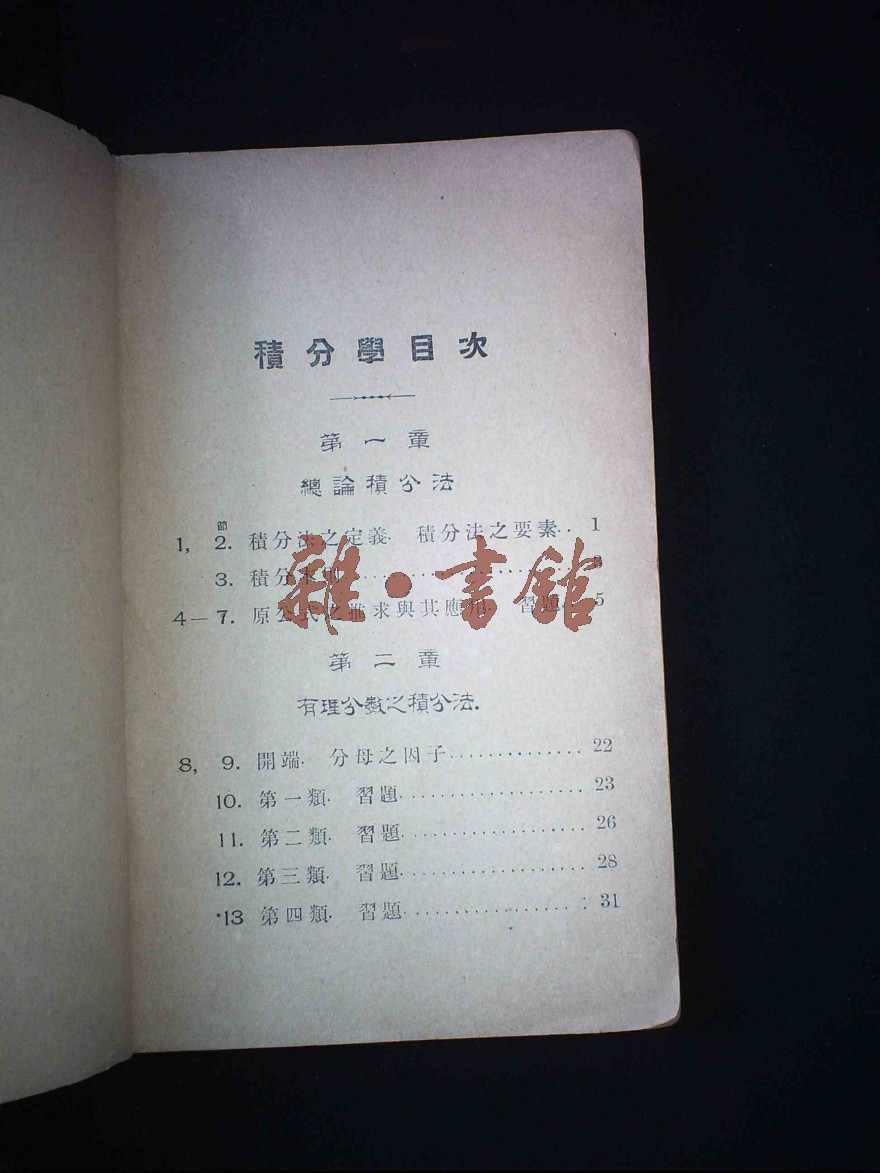 積分學目次
第一章
總論積分法
節
1, 2. 積分法之定義. 積分法之要素.. 1
3. 積分 ........ 3
4—7. 原公式之推求與其應用. 習題.. 5
雜·書館
第二章
有理分數之積分法.
8, 9. 開端. 分母之因子.............. 22
10. 第一類. 習題.................... 23
11. 第二類. 習題.................... 26
12. 第三類. 習題.................... 28
13 第四類. 習題.................... 31